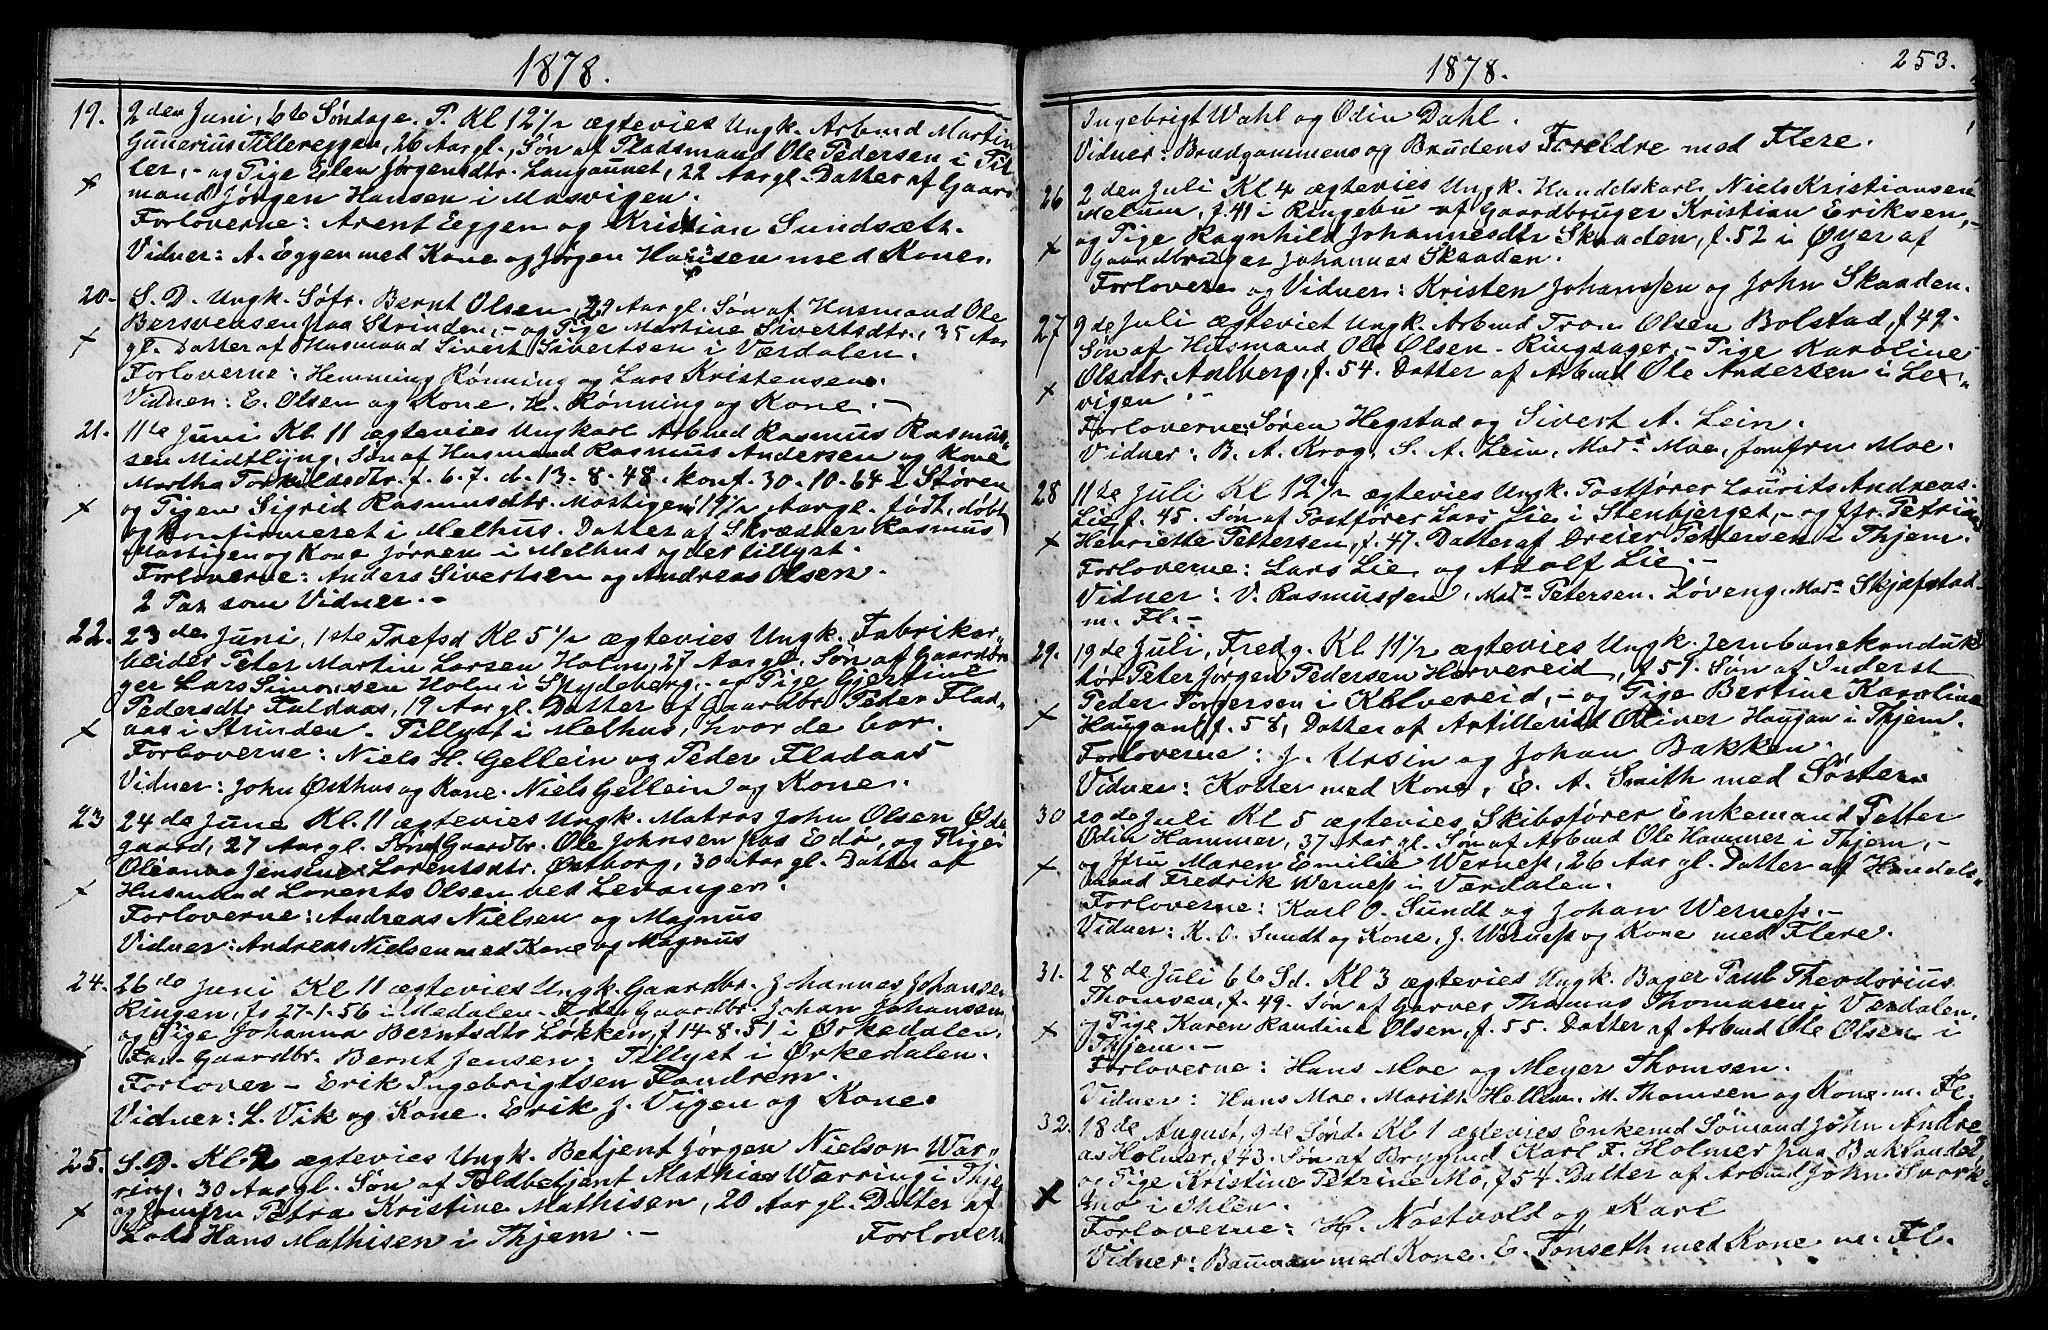 1878.
19. 2den Juni, 6te Søndag e. P. Kl 12 1/2 ægtevies Ungk. Arbmd Martin
Gunerius Tillereggen, 26 Aar gl., Søn af Pladsmand Ole Pedersen i Til
ler, - og Pige Elen Jørgensdtr. Langaunet, 22 Aar gl. Datter af Gaard
mand Jørgen Hansen i Masvigen.
Forloverne: Arent Eggen og Kristian Sundsæth.
Vidner: A. Eggen med Kone og Jørgen Hansen med Kone.
20. S. D. Ungk. Søfr. Bernt Olsen, 29 Aar gl. Søn af Husmand Ole
Bersvensen paa Strinden, - og Pige Martine Sivertsdtr., 35 Aar
gl. Datter af Husmand Sivert Sivertsen i Værdalen.
Forloverne: Hemming Rønning og Lars Kristensen.
Vidner: E. Olsen og Kone. H. Rønning og Kone. -
21. 11te Juni Kl. 11 ægtevies Ungkarl Arbmd Rasmus Rasmus„
sen Midtlyng, Søn af Husmand Rasmus Andersen og Kone
Martha Torkildsdtr. f. 6.7. d. 13-8-48. konf. 30-10-64 i Støren
og Pigen Sigrid Rasmusdtr. Mostigen, 19 1/2 Aar gl. født, døbt
og konfirmeret i Melhus. Datter af Skrædder Rasmus
Mostigen og Kone Jørren i Melhus og der tillyst.
Forloverne: Anders Sivertsen og Andreas Olsen.
2 Par som Vidner. -
22. 23de Juni, 1ste Trefsd Kl 5 1/2 ægtevies Ungk. Fabrikar„
beider Peter Martin Larsen Holm, 27 Aar gl. Søn af Gaardbru
ger Lars Simonsen Holm i Skydeberg, - og Pige Gjertine
Pedersdtr Fuldaas, 19 Aar gl. Datter af Gaardbr. Peder Flad„
aas i Strinden - Tillyst i Melhus, hvor de bor.
Forloverne: Niels H. Gellein og Peder Fladaas
Vidner: John Østhus og Kone. Niels Gellein og Kone.
23 24de June Kl. 11 ægtevies Ungk. Matros John Olsen Øde
gaard, 27 Aar gl. Søn af Gaardbr. Ole Johnsen paa Edø, og Pige
Oleanna Jenstine Lorentsdtr. Østborg, 30 Aar gl. Datter af
Husmand Lorents Olsen ved Levanger.
Forloverne: Andreas Nielsen og Magnus
Vidner: Andreas Nielsen med Kone og Magnus
24. 26de Juni Kl 11 ægtevies Ungk. Gaardbr. Johannes Johansen
Ringen, fs 27-1-56 i Medalen - Gaardbr. Johan Johansen
og Pige Johanna Berntsdtr Løkken, f 14-8-51 i Ørkedalen.
Fan. Gaardbr. Bernt Jensen: Tillyst i Ørkedalen.
Forlover - Erik Ingebrigtsen Flandrem.
Vidner: L. Vik og Kone. Erik J. Vigen og Kone.
25. S. D. Kl. 2 ægtevies Ungk. Betjent Jørgen Nielson War„
ring. 30 Aar gl. Søn af Toldbetjent Mathias Warring i Thjem
og Jomfru Petra Kristine Mathisen, 20 Aar gl. Datter af
Lods Hans Mathisen i Thjem. - Forlovern
1878. 253.
Ingebrigt Wahl og Odin Dahl.
Vidner: Brudgommens og Brudens Foreldre med Flere.
26 2den Juli Kl 4 ægtevies Ungk. Handelskarl Niels Kristiansen
Melum, f. 41 i Ringebu - af Gaardbruger Kristian Eriksen, -
og Pige Ragnhild Johannesdtr Skaaden, f. 52 i Øyer af
Gaardbruger Johannes Skaaden.
Forlovere og Vidner: Kristen Johanssen og John Skaaden.
27 9de Juli ægteviet Ungk. Arbmd Tron Olsen Bolstad, f 49.
Søn af Husmand Ole Olsen - Ringsager, - Pige Karoline
Olsdtr. Aalberg, f. 54. Datter af Arbmd Ole Andersen i Lex„
vigen. -
Forloverne: Søren Hegstad og Sivert A. Lein.
Vidner: B. A. Krog, S. A. Lein, Mad. Moe, Jomfru Moe.
28 11te Juli Kl 12 1/2 ægtevies Ungk. Postfører Laurits Andreas
Lie, f. 45. Søn af Postfører Lars Lie i Stenbjerget, - og Jfr. Petrine
Henriette Pettersen, f. 47. Datter af Dreier Pettersen i Thjem.
Forloverne: Lars Lie og Adolf Lie. -
Vidner: V. Rasmussen, Mad. Petersen. Løveng, Mad. Skjefstad
m. Fl. -
29. 19de Juli, Fredg. Kl. 11 1/2 ægtevies Ungk. Jernbanekonduk
tør Peter Jørgen Pedersen Horvereid, f 51. Søn af Inderst
Peder Torgersen i Kolvereid, - og Pige Bertine Karoline
Haugan, f. 58, Datter af Artillerist Oliver Haugan i Thjem.
Forloverne: J. Ursin og Johan Bakken.
Vidner: Koller med Kone, E. A. Smith med Søster.
30 20de Juli Kl 5 ægtevies Skibsfører Enkemand Petter
Odin Hammer, 37 Aar gl. Søn af Arbmd Ole Hammer i Thjem, -
og Jfru Maren Emilie Werness, 26 Aar gl. Datter af Handels„
mand Fredrik Werness i Værdalen.
Forloverne: Karl O. Sundt og Johan Werness. -
Vidner: K. O. Sundt og Kone, J. Werness og Kone med Flere.
31. 28de Juli 6te Sd. Kl 3 ægtevies Ungk. Bager Paul Theodorius
Thomsen, f. 49. Søn af Garver Thomas Thomasen i Værdalen,
og Pige Karen Randine Olsen, f. 55. Datter af Arbmd Ole Olsen i
Thjem. -
Forloverne: Hans Moe og Meyer Thomsen.
Vidner: Hans Moe. Marith Hellem. M. Thomsen og Kone. m. Fl.
32. 18de August, 9de Sønd. Kl 1 ægtevies Enkemd Sømand John Andre
as Holmer, f 43. Søn af Brygmd Karl F. Holmer paa Baklandet,
og Pige Kristine Petrine Mo, f 54. Datter af Arbmd John Svork„
mo i Ihlen.
Forloverne: H. Nøstvold og Karl
Vidner: Bauman med Kone. E. Tonseth med Kone m. Fl.